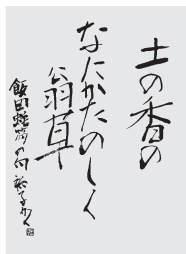 土の香の
なにかたのしく
翁草
飯田蛇笏の句